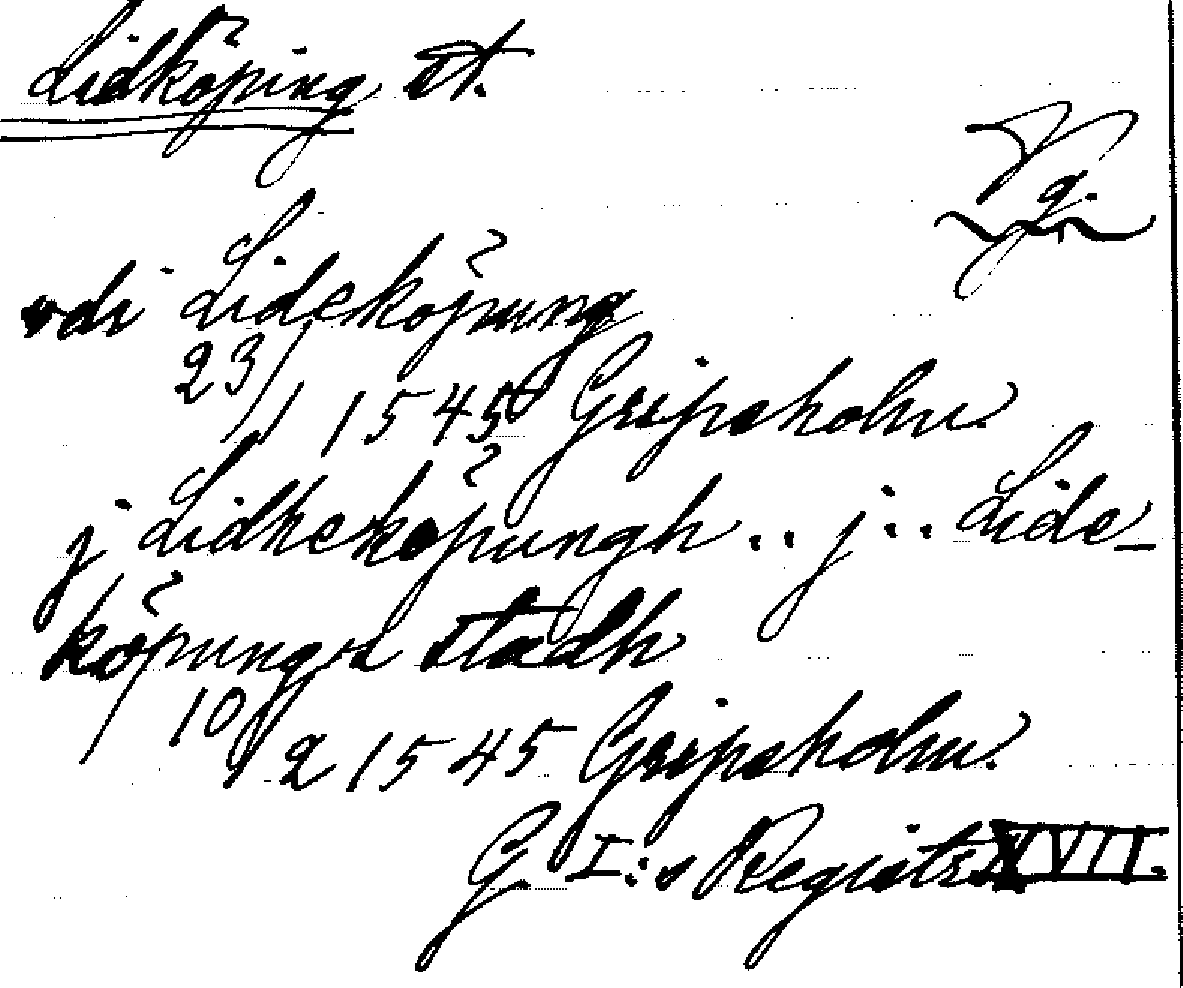 Lidköping st.
Vg.
vdi Lideköpung
23/1 1545 Gripsholm.
j Lidheköpungh .. j .. Lide-
köpungx stadh
10/2 1545 Gripsholm.
G. I:s Registr. XVII.